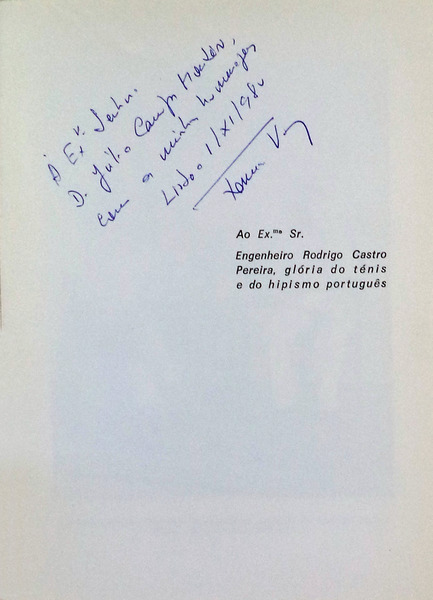 À Ex.ᵃ Senhora
D. Júlio Campos
com as minhas homenagens
Lisboa 1/XI/98
Ao Ex.ᵐᵒ Sr.
Engenheiro Rodrigo Castro
Pereira, glória do ténis
e do hipismo português